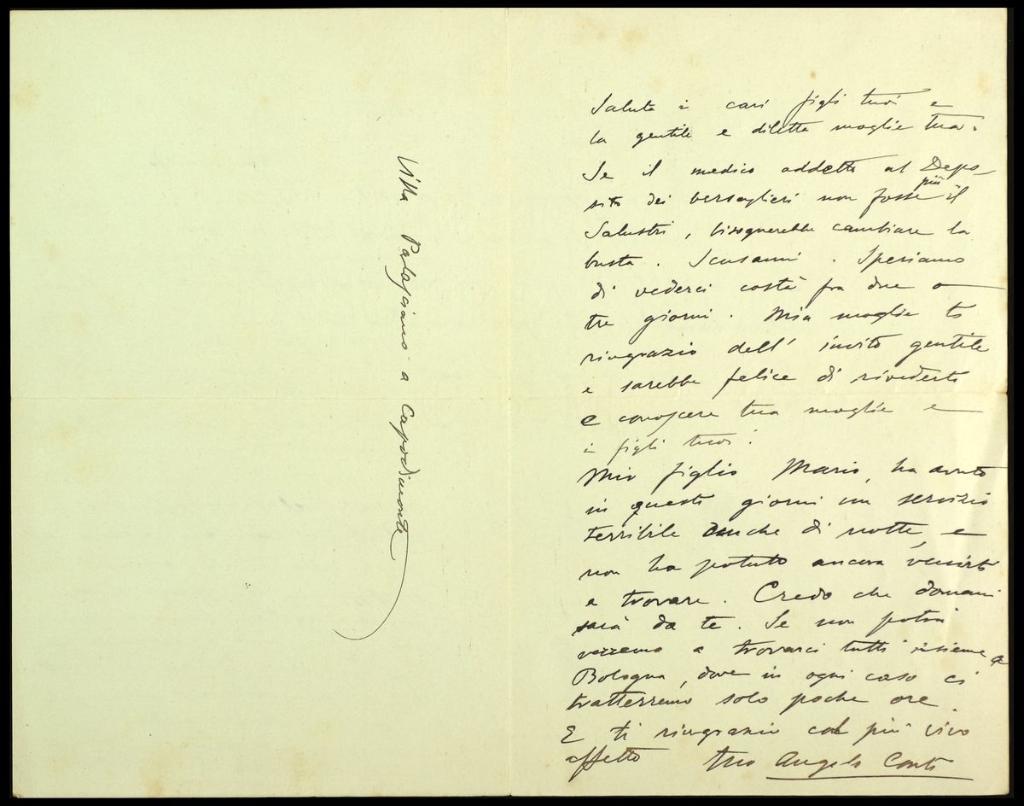 Villa Patagiano a Capodimonte
Saluta i cari figli tuoi e
la gentile e diletta moglie tua.
Se il medico addetto al Depo-
sito dei bersaglieri non fosse più il
Salustri, bisognerebbe cambiare la
busta. Scusami. Speriamo
di vederci costì fra due o
tre giorni. Mia moglie ti
ringrazia dell' invito gentile
e sarebbe felice di rivederti
e conoscere tua moglie e
i figli tuoi.
Mio figlio Mario, ha avuto
in questi giorni un servizio
terribile anche di notte, e
non ha potuto ancora venirti
a trovare. Credo che domani
sarà da te. Se non potrà
verremo a trovarci tutti insieme a
Bologna, dove in ogni caso ci
tratterremo solo poche ore.
E ti ringrazio col più vivo
affetto tuo Angelo Conti